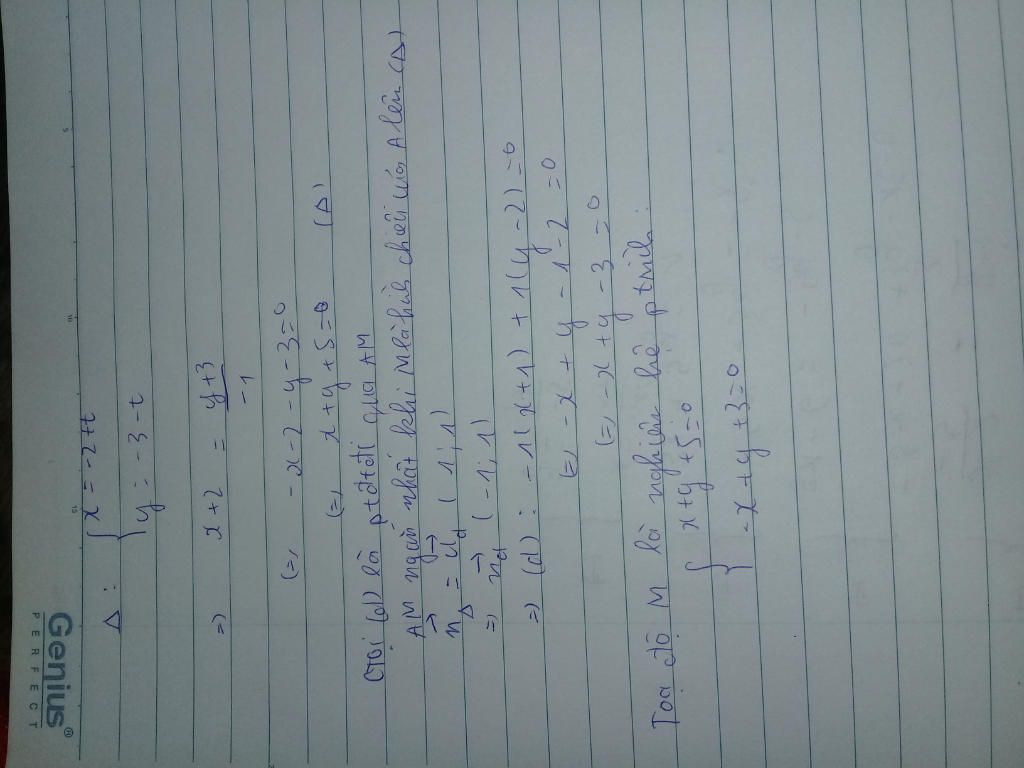 Genius®
PERFECT
Δ: { x = -2+t
{ y = -3-t
=> x+2 = y+3 / -1
(=) -x-2-y-3=0
(=) x+y+5=0 (Δ)
Gọi (d) là ptđtđi qua AM
AM ngắn nhất khi M là hình chiếu của A lên (Δ)
n⃗Δ = u⃗d (1;1)
=> n⃗d (-1;1)
=> (d): -1(x+1)+1(y-2)=0
(=) -x+y-1-2=0
(=) -x+y-3=0
Tọa độ M là nghiệm hệ ptrình:
{ x+y+5=0
{ -x+y+3=0